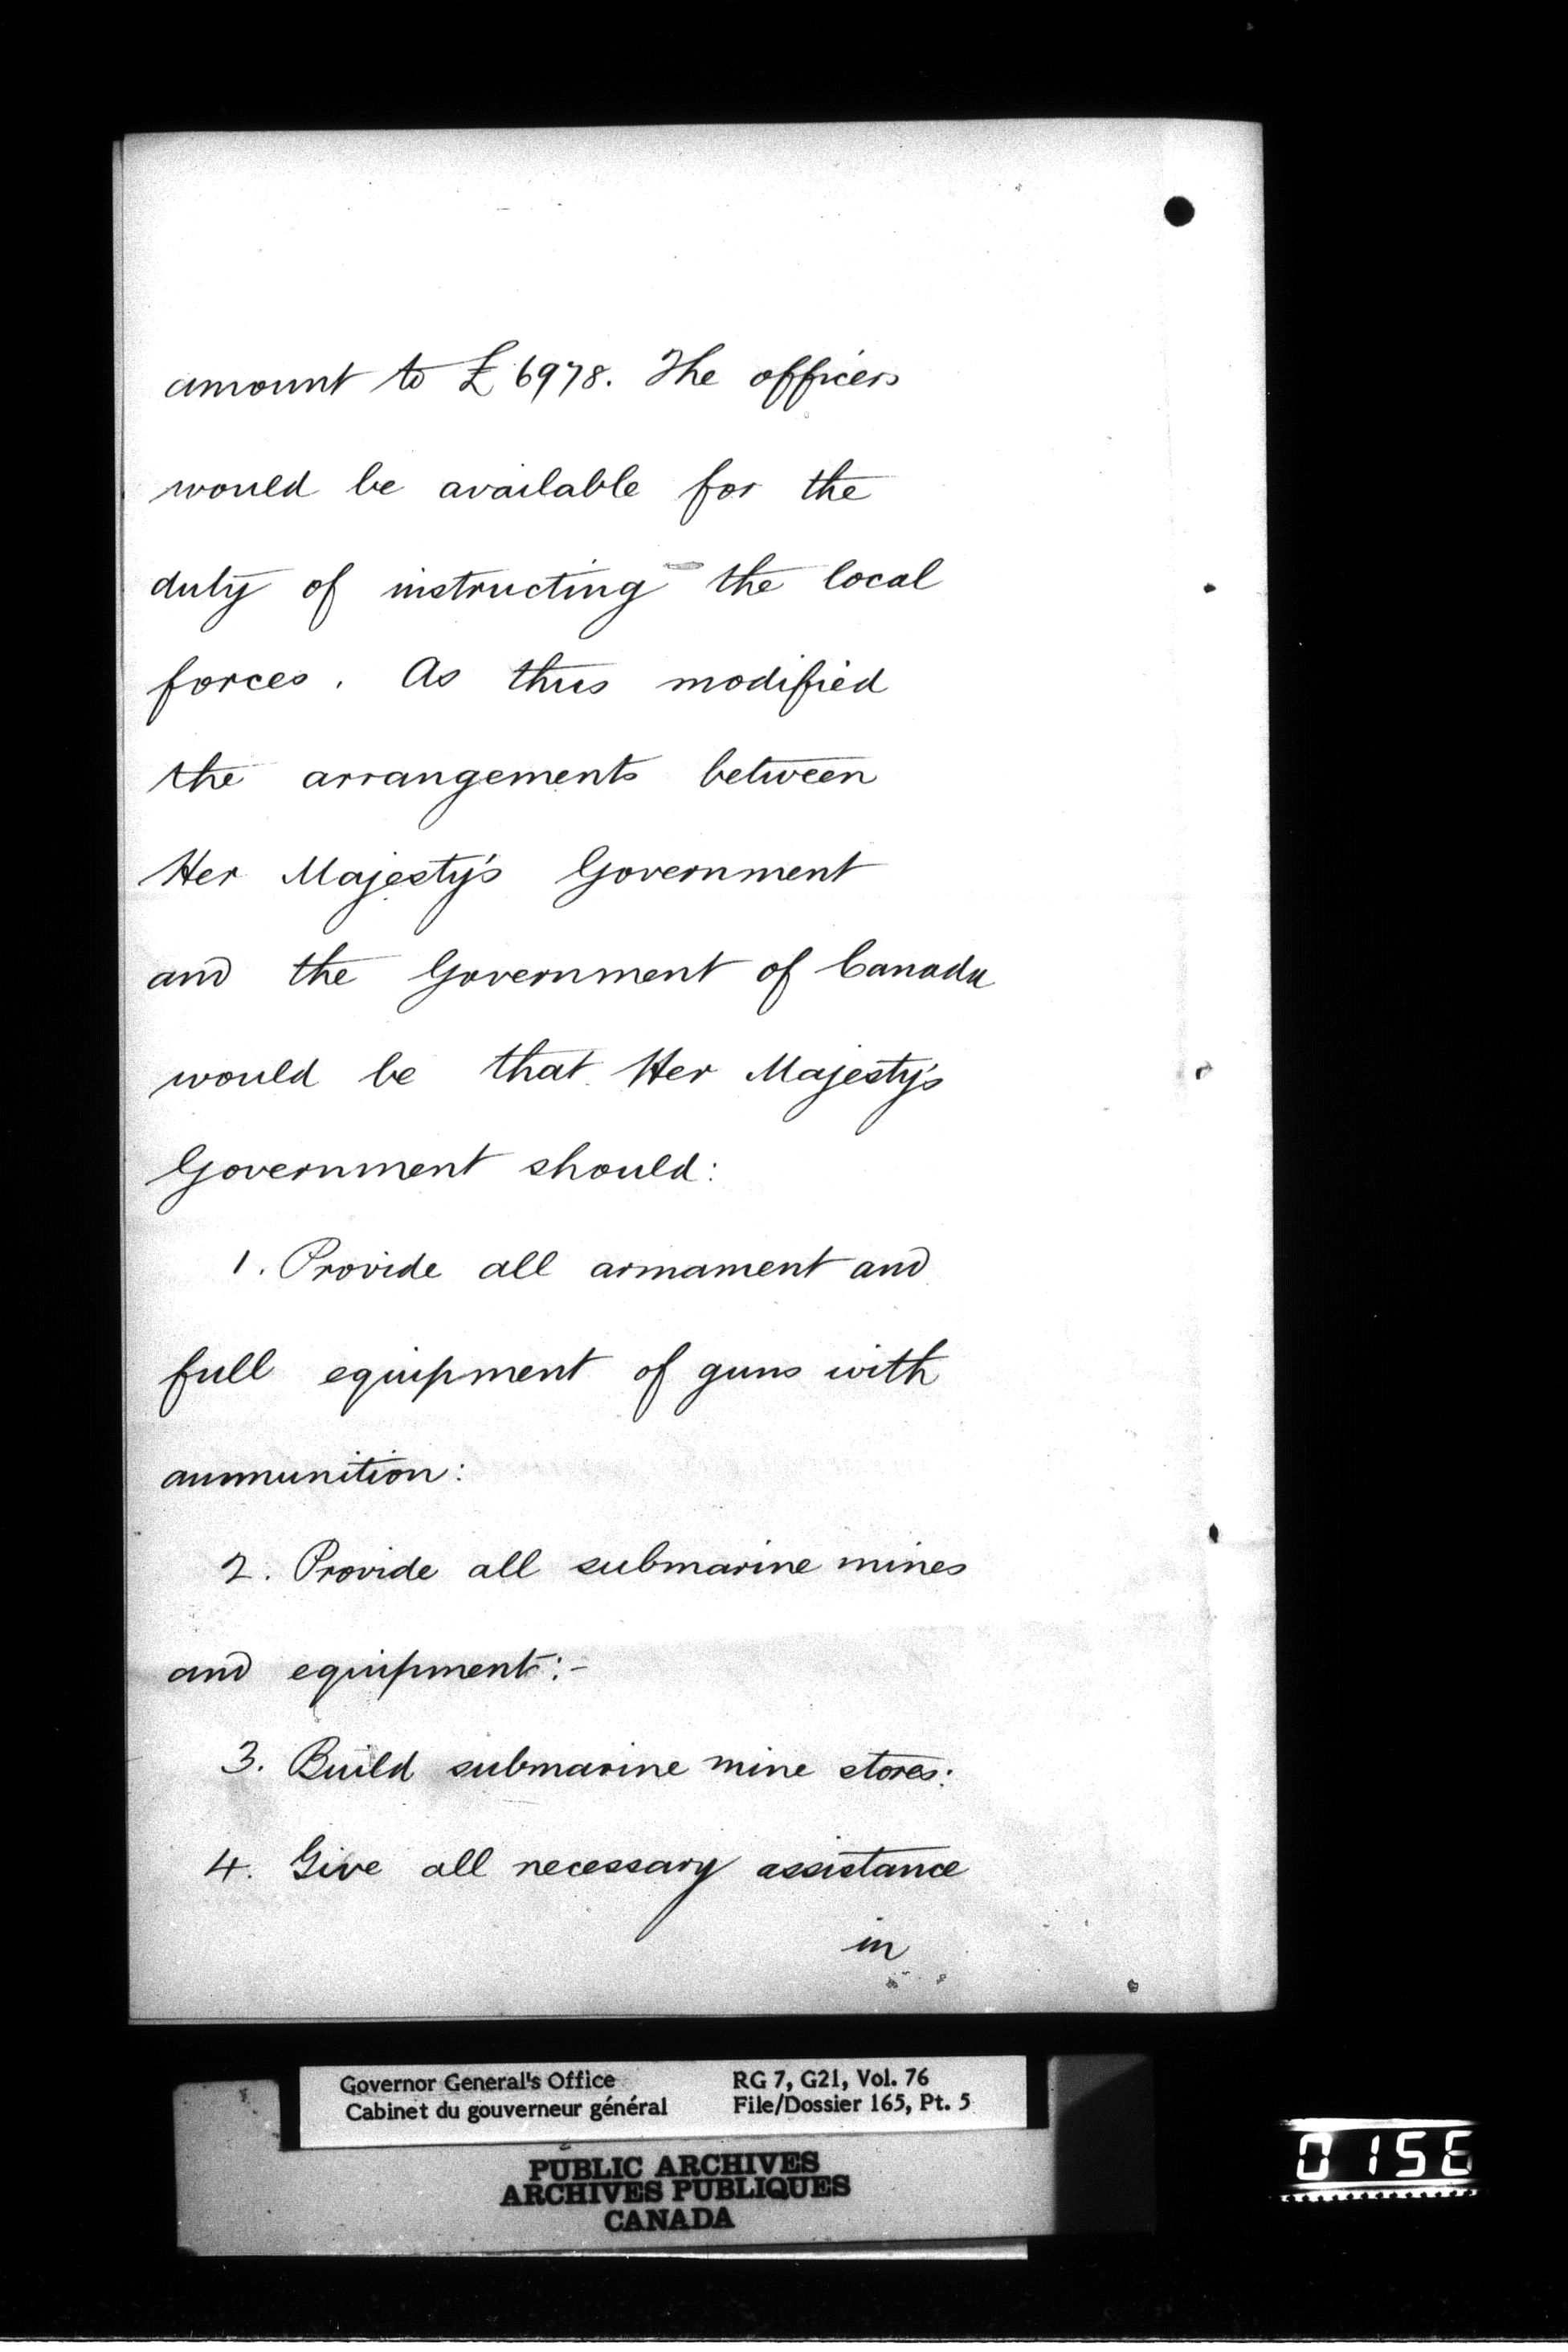 amount to £6978. The officers
would be available for the
duty of instructing the local
forces. As thus modified
the arrangements between
Her Majesty's Government
and the Government of Canada
would be that Her Majesty's
Government should:
1. Provide all armament and
full equipment of guns with
ammunition:
2. Provide all submarine mines
and equipment:-
3. Build submarine mine stores:
4. Give all necessary assistance
in
Governor General's Office RG 7, G21, Vol. 76
Cabinet du gouverneur général File/Dossier 165, Pt. 5
PUBLIC ARCHIVES
ARCHIVES PUBLIQUES
CANADA